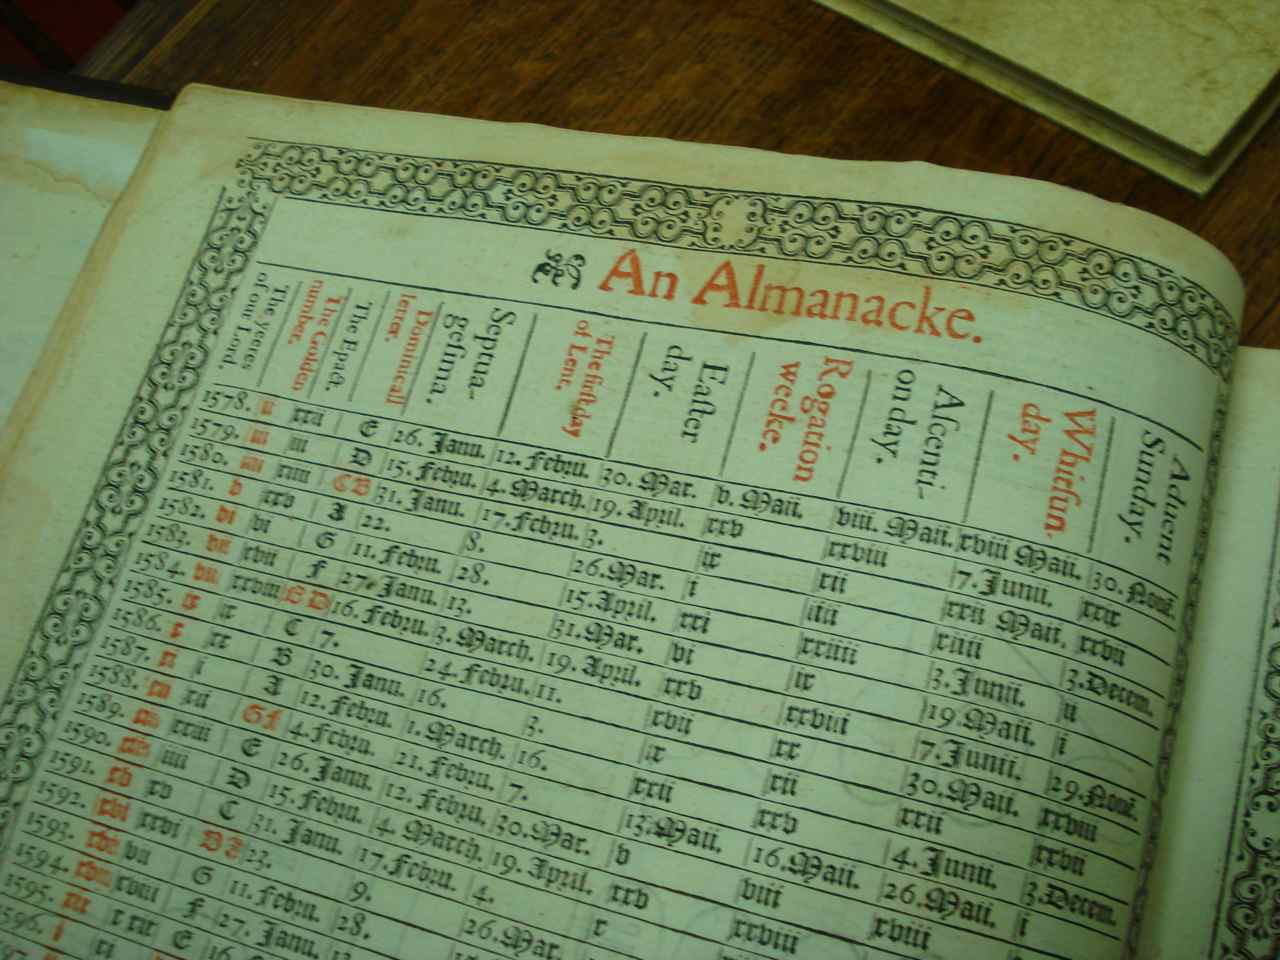 An Almanacke.
The yeere of our Lord.
The Golden number.
The Epact.
Dominicall letter.
Septuagesima.
The first day of Lent.
Easter day.
Rogation weeke.
Ascention day.
Whitsun day.
Advent Sunday.
1578. ii xxii E 26. Janu. 12. Febru. 30. Mar. v. Maii. viii. Maii. xviii Maii. 30. Nove.
1579. iii iii D 15. Febru. 4. March. 19. April. xxv xxviii 7. Junii. xxix
1580. iiii xiiii CB 31. Janu. 17. Febru. 3. ix xii xxii Maii. xxvii
1581. v xxv A 22. 8. 26. Mar. i iiii xiiii 3. Decem.
1582. vi vi G 11. Febru. 28. 15. April. xxi xxiiii 3. Junii. ii
1583. vii xvii F 27. Janu. 13. 31. Mar. vi ix 19. Maii. i
1584. viii xxviii ED 16. Febru. 4. March. 19. April. xxv xxviii 7. Junii. 29. Nove.
1585. ix ix C 7. 24. Febru. 11. xvii xx 30. Maii. xxviii
1586. x xx B 30. Janu. 16. 3. ix xii xxii xxvii
1587. xi i A 12. Febru. 1. March. 16. xxii xxv 4. Junii. 3. Decem.
1588. xii xii GF 4. Febru. 21. Febru. 7. 13. Maii. 16. Maii. 26. Maii. i
1589. xiii xxiii E 26. Janu. 12. Febru. 30. Mar. v viii xviii
1590. xiiii iiii D 15. Febru. 4. March. 19. April. xxv xxviii
1591. xv xv C 31. Janu. 17. Febru. 4. x
1592. xvi xxvi BA 23. 9. 26. Mar.
1593. xvii vii G 11. Febru. 28.
1594. xviii xviii F 27. Janu. 13.
1595. xix xxix E 16.
1596. i xi